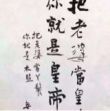 把老婆當皇
你就是皇帝
把老婆當丫鬟
你就是太監